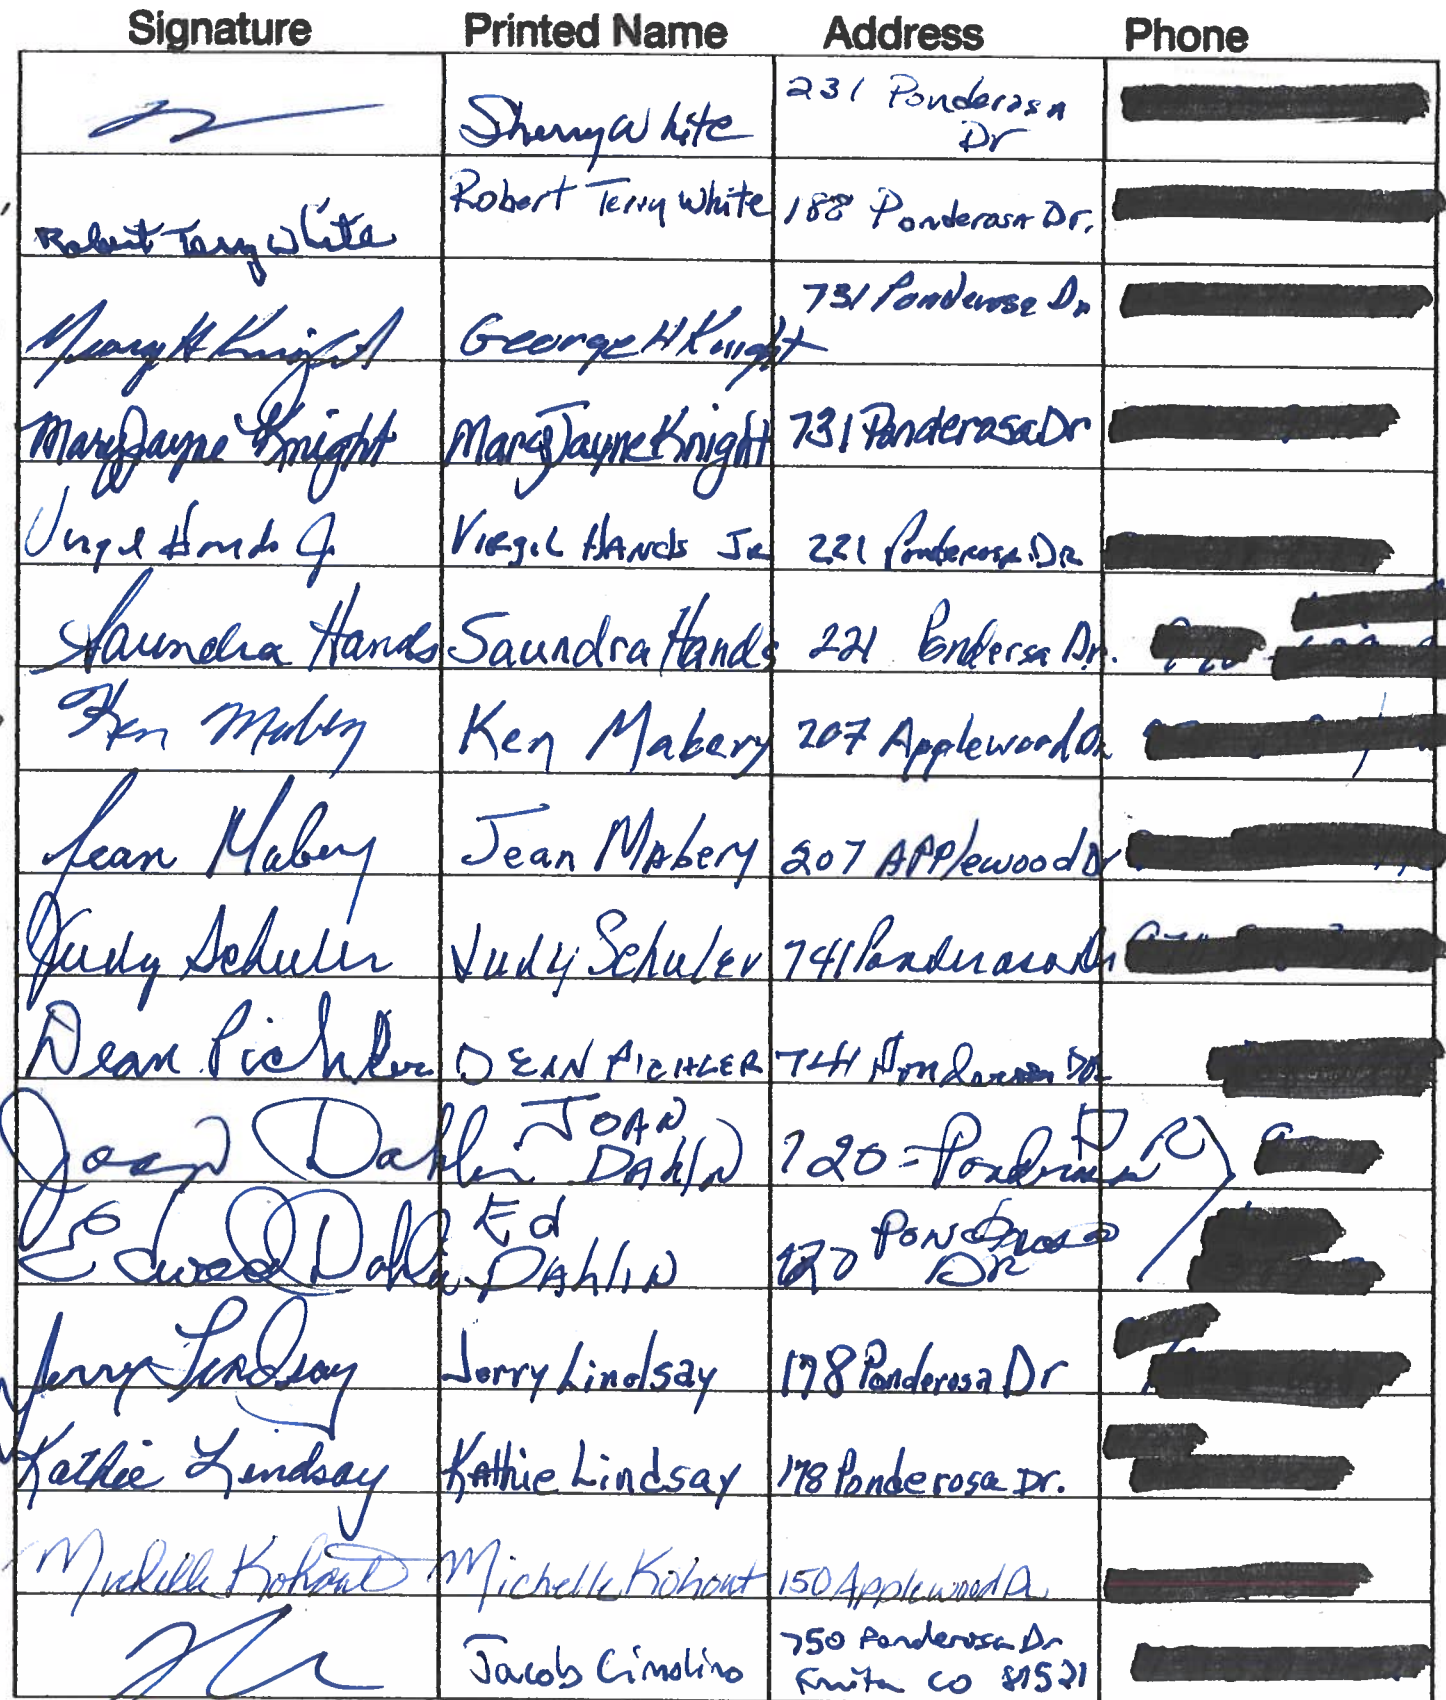 Signature Printed Name Address Phone
Sherry White 231 Ponderosa
Dr
Robert Terry White Robert Terry White 188 Ponderosa Dr.
George H Knight George H Knight 731 Ponderosa Dr
Mary Jayne Knight Mary Jayne Knight 731 Ponderosa Dr
Virgil Hands Jr Virgil Hands Jr 221 Ponderosa Dr
Saundra Hands Saundra Hands 221 Pondersa Dr.
Ken Mabery Ken Mabery 207 Applewood Dr
Jean Mabery Jean Mabery 207 Applewood Dr
Judy Schuler Judy Schuler 741 Ponderosa Dr
Dean Pichler DEAN PICHLER 741 Ponderosa DR
Joan Dahlin JOAN
DAHlIN 720 Ponderosa
Edward Dahlin Ed
DAHlIN 720 Ponderosa
DR
Jerry Lindsay Jerry Lindsay 178 Ponderosa Dr
Kathie Lindsay Kathie Lindsay 178 Ponderosa Dr.
Michelle Kohout Michelle Kohout 150 Applewood Dr
Jacob Cimolino 750 Ponderosa Dr
Fruita CO 81521